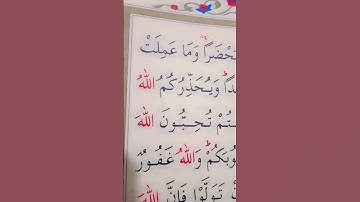 مُحْضَرًا وَمَا عَمِلَتْ
وَيُحَذِّرُكُمُ اللّٰهُ
تُحِبُّونَ اللّٰهَ
وَاللّٰهُ غَفُورٌ
تَوَلَّوْا فَاِنَّ اللّٰهَ